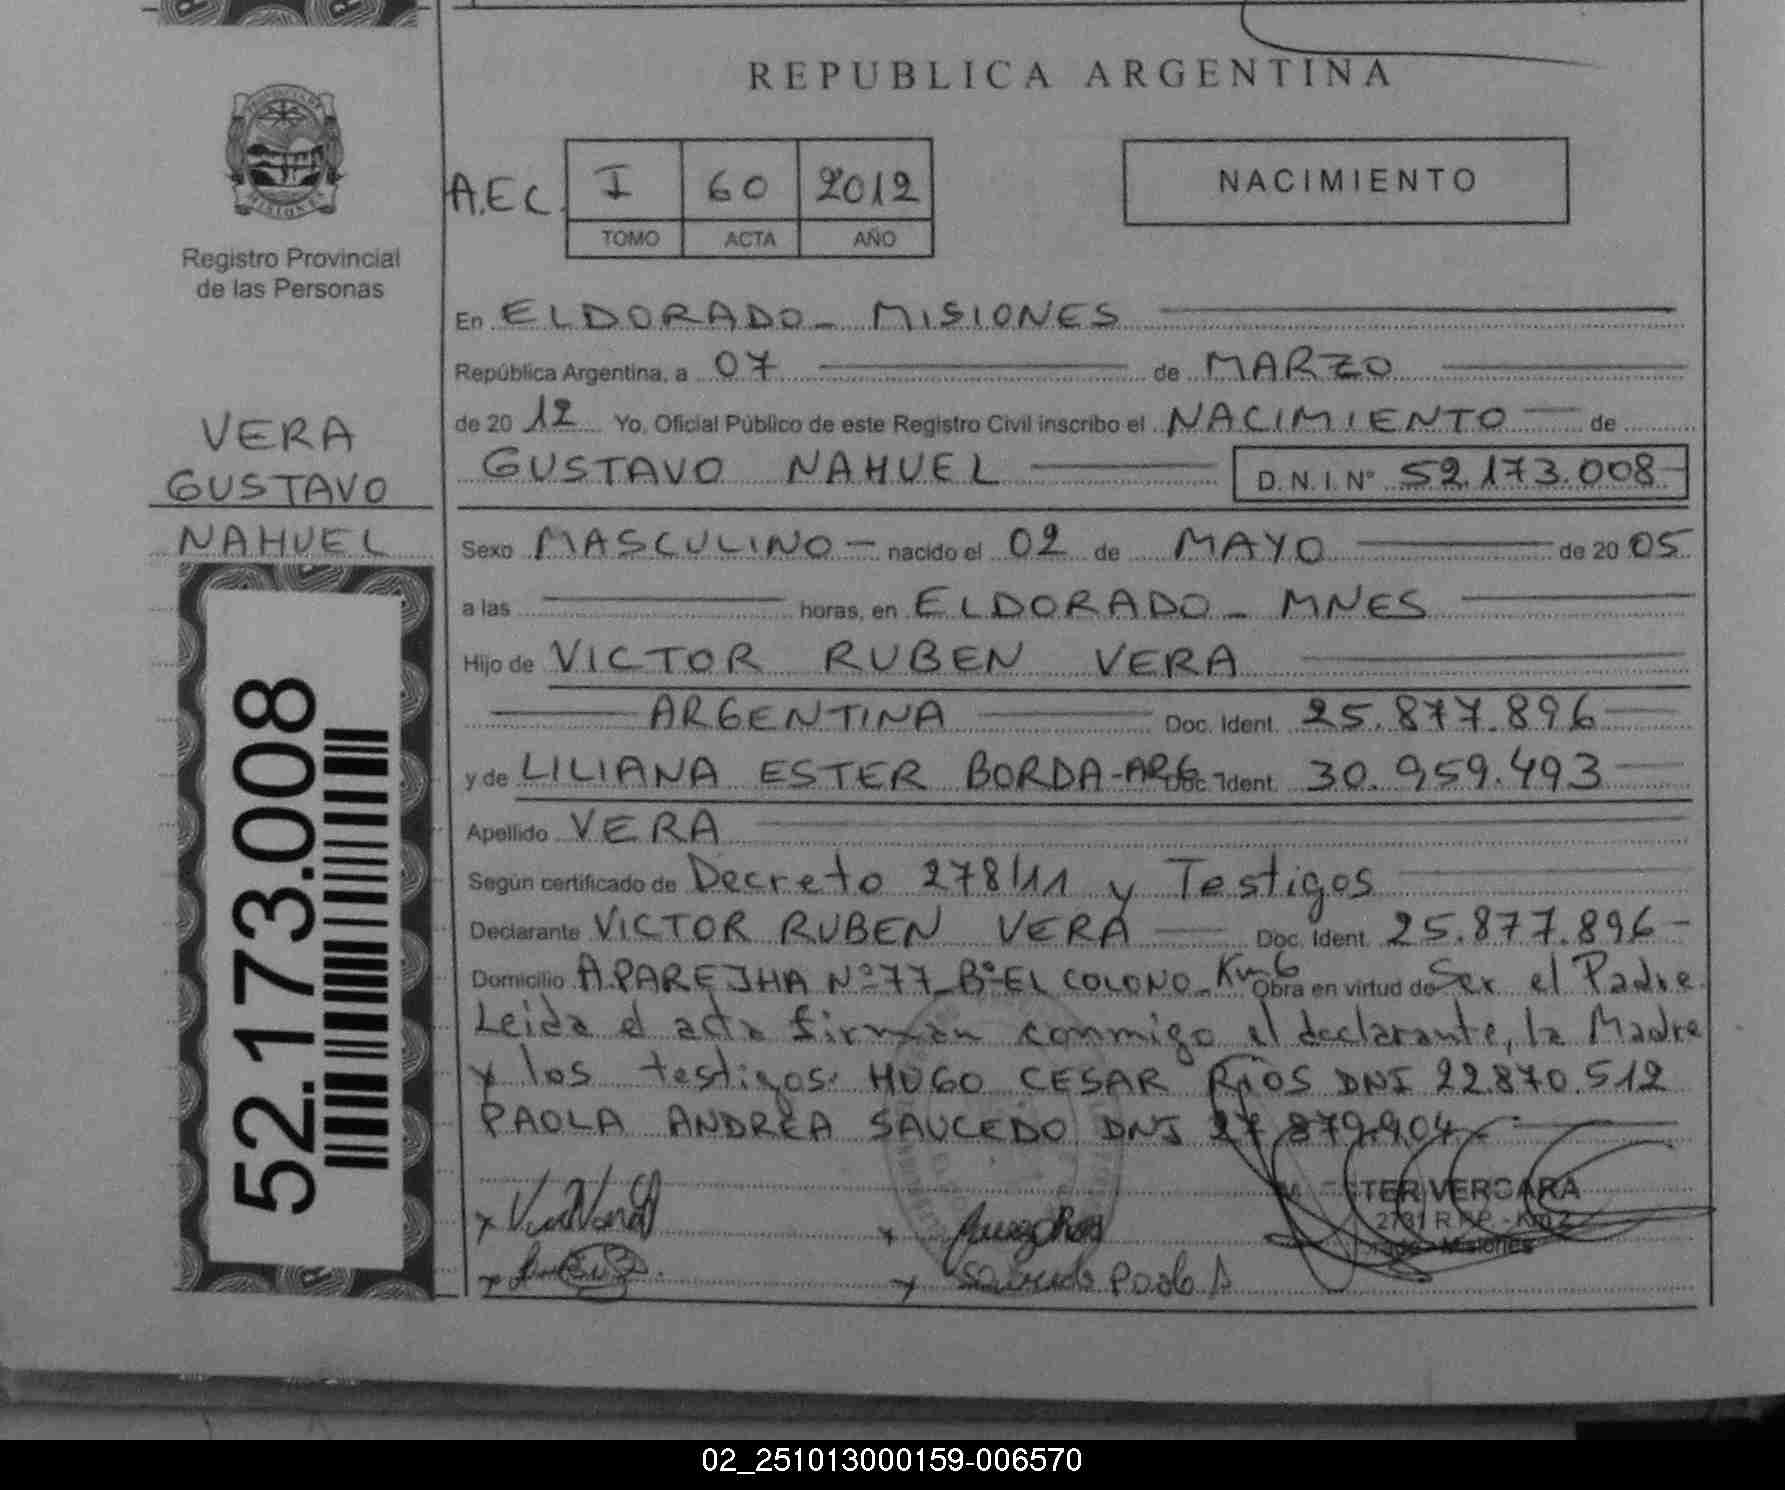 REPUBLICA ARGENTINA
PROVINCIA DE
MISIONES
Registro Provincial
de las Personas
A.E.C. I 60 2012
TOMO ACTA AÑO
NACIMIENTO
En ELDORADO - MISIONES
República Argentina, a 07 de MARZO
de 20 12 Yo, Oficial Público de este Registro Civil inscribo el NACIMIENTO de
GUSTAVO NAHUEL D.N.I. Nº 52.173.008
VERA
GUSTAVO
NAHUEL
Sexo MASCULINO - nacido el 02 de MAYO de 20 05
a las horas, en ELDORADO - MNES
Hijo de VICTOR RUBEN VERA
ARGENTINA Doc. Ident. 25.877.896
y de LILIANA ESTER BORDA-ARG Doc. Ident. 30.959.493
Apellido VERA
Según certificado de Decreto 278/11 y Testigos
Declarante VICTOR RUBEN VERA Doc. Ident. 25.877.896
Domicilio Nº 77 Bº EL COLONO - Km 6 Obra en virtud de Ser el Padre
Leida el acta firman conmigo el declarante, la Madre
y los testigos: HUGO CESAR RIOS DNI 22.870.512
PAOLA ANDREA SAUCEDO DNI 27.879.904
52.173.008
VERGARA
Misiones
Paola A
02_251013000159-006570